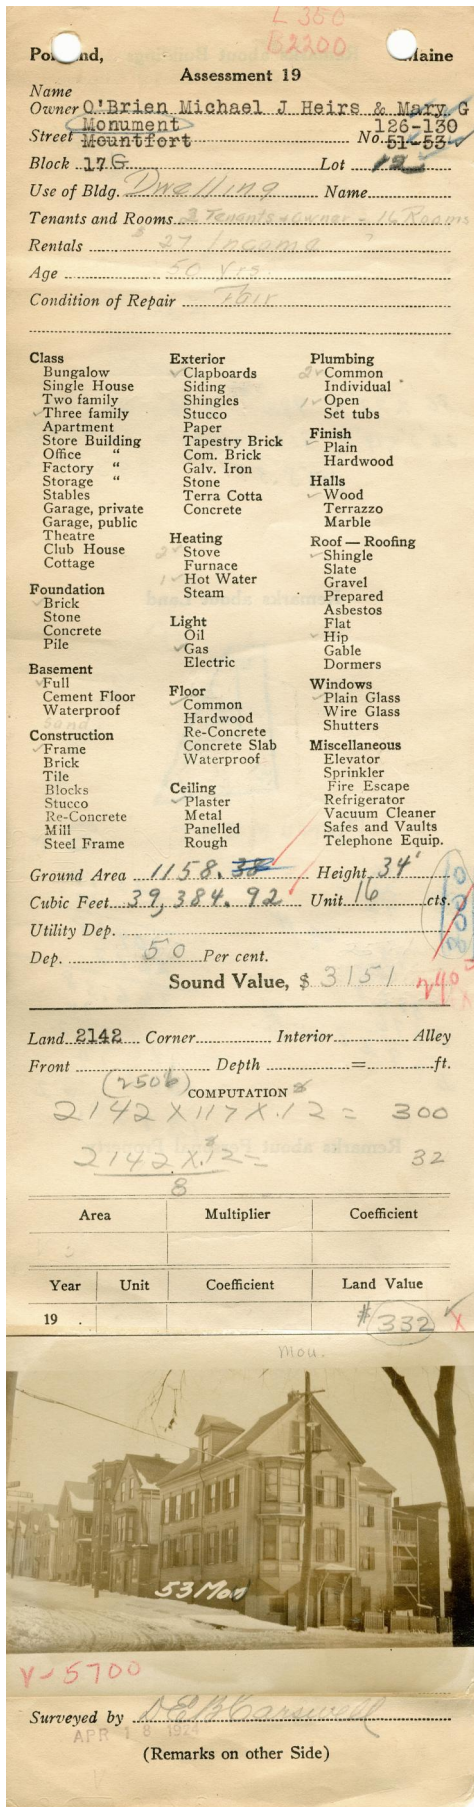 L 350
B2200
Portland, Maine
Assessment 19
Name
Owner O'Brien Michael J Heirs & Mary G
Monument 126-130
Street Mountfort No. 51-53
Block 17G Lot 12
Use of Bldg. Dwelling Name
Tenants and Rooms 2 Tenants + Owner - 16 Rooms
Rentals $ 27 Income "
Age 50 Yrs.
Condition of Repair Fair
Class
Bungalow
Single House
Two family
✓ Three family
Apartment
Store Building
Office "
Factory "
Storage "
Stables
Garage, private
Garage, public
Theatre
Club House
Cottage
Foundation
✓ Brick
Stone
Concrete
Pile
Basement
✓ Full
Cement Floor
Waterproof
Construction
✓ Frame
Brick
Tile
Blocks
Stucco
Re-Concrete
Mill
Steel Frame
Exterior
✓ Clapboards
Siding
Shingles
Stucco
Paper
Tapestry Brick
Com. Brick
Galv. Iron
Stone
Terra Cotta
Concrete
Heating
2 ✓ Stove
Furnace
1 ✓ Hot Water
Steam
Light
Oil
✓ Gas
Electric
Floor
✓ Common
Hardwood
Re-Concrete
Concrete Slab
Waterproof
Ceiling
✓ Plaster
Metal
Panelled
Rough
Plumbing
2 ✓ Common
Individual
1 ✓ Open
Set tubs
Finish
✓ Plain
Hardwood
Halls
✓ Wood
Terrazzo
Marble
Roof — Roofing
✓ Shingle
Slate
Gravel
Prepared
Asbestos
Flat
✓ Hip
Gable
Dormers
Windows
✓ Plain Glass
Wire Glass
Shutters
Miscellaneous
Elevator
Sprinkler
Fire Escape
Refrigerator
Vacuum Cleaner
Safes and Vaults
Telephone Equip.
Ground Area 1158.38 Height 34'
Cubic Feet 39,384.92 Unit 16 cts.
Utility Dep.
Dep. 50 Per cent.
Sound Value, $ 3151
Land 2142 Corner Interior Alley
Front Depth = ft.
(2506)
COMPUTATION
2142 X 117 X .12 = 300
2142 X .12 = 32
8
Area Multiplier Coefficient
Year Unit Coefficient Land Value
19 . $ 332 ✓ X
Mou.
53 Mon
V-5700
Surveyed by D E B Carswell
APR 18 1924
(Remarks on other Side)